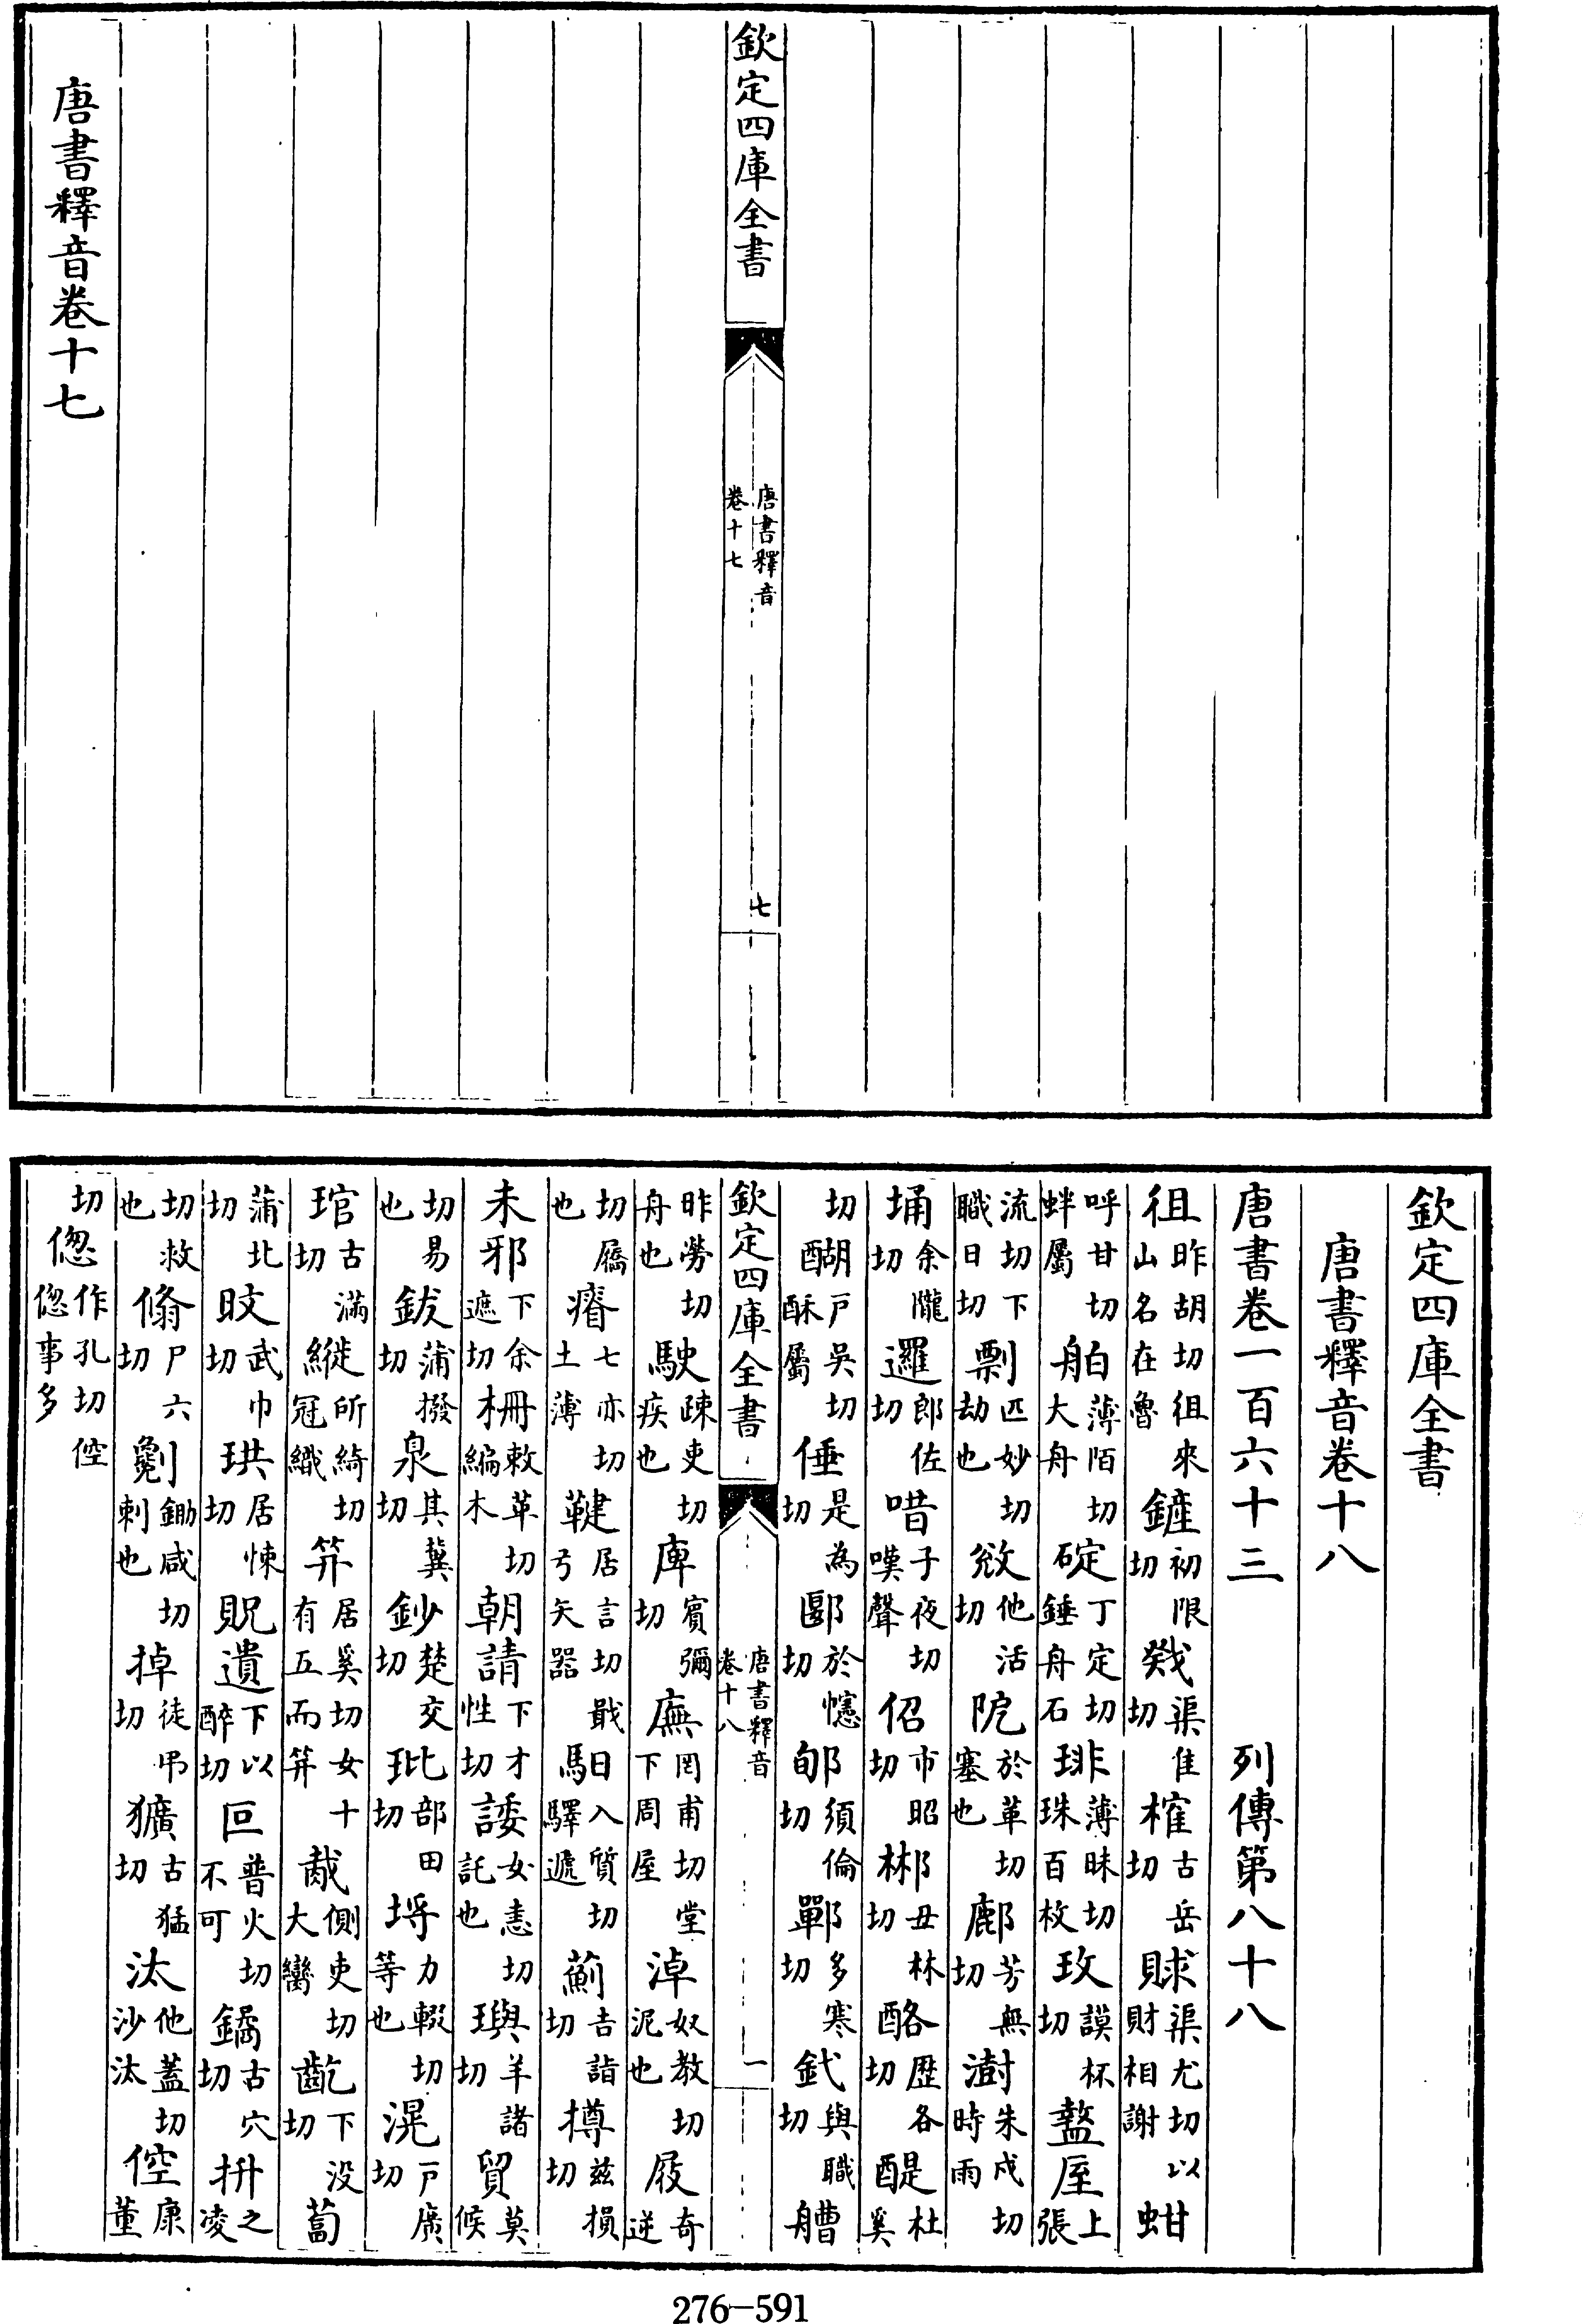 欽定四庫全書
唐書釋音
卷十七
七
唐書釋音卷十七
欽定四庫全書
唐書釋音卷十八
唐書卷一百六十三 列傳第八十八
徂昨胡切徂來山名在魯 鏟初限切 戣渠隹切 榷古岳切 賕渠尤切以財相謝 蚶
呼甘切蚌屬 舶薄陌切大舟 碇丁定切錘舟石 琲薄昧切珠百枚 玫謨杯切 盩厔上張
流切下職日切 剽匹妙切劫也 敓他活切 阸於革切塞也 鄜芳無切 澍朱戍切時雨
埇余隴切 邏郎佐切 唶子夜切嘆聲 佋市昭切 郴丑林切 酪歷各切 醍杜奚
切 醐戶吳切酥屬 倕是為切 郾於幰切 郇須倫切 鄲多寒切 釴與職切 艚
欽定四庫全書
唐書釋音
卷十八
一
昨勞切舟也 駛疎吏切疾也 庳賓彌切 廡罔甫切堂下周屋 淖奴教切泥也 屐奇逆
切屩也 瘠七亦切土薄 鞬居言切戢弓矢器 馹日入質切驛遞 薊吉詣切 撙兹損切
未邪下余遮切 柵敕革切編木 朝請下才性切 諉女恚切託也 璵羊諸切 貿莫候
切易也 鈸蒲撥切 泉其冀切 鈔楚交切 玭部田切 埒力輟切等也 滉戶廣切
琯古滿切 縰所綺切冠織 笄居奚切女十有五而笄 胾側吏切大臠 齕下没切 蒚
蒲北切 旼武巾切 珙居悚切 貺遺下以醉切 叵普火切不可 鐍古穴切 拼之凌
切救也 翛尸六切 劖鋤咸切刺也 掉徒弔切 獷古猛切 汰他蓋切沙汰 倥康董
切 偬作孔切倥偬事多
276-591